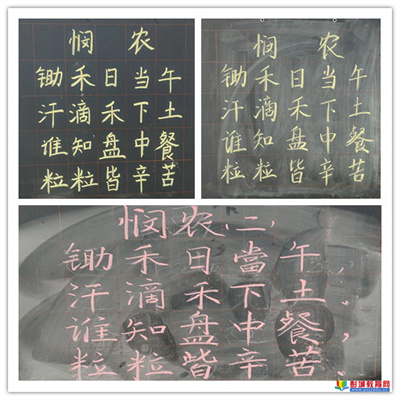 悯农
锄禾日当午
汗滴禾下土
谁知盘中餐
粒粒皆辛苦
悯农
锄禾日当午
汗滴禾下土
谁知盘中餐
粒粒皆辛苦
悯农(二)
锄禾日當午,
汗滴禾下土。
谁知盘中餐,
粒粒皆辛苦。
彭城教育网